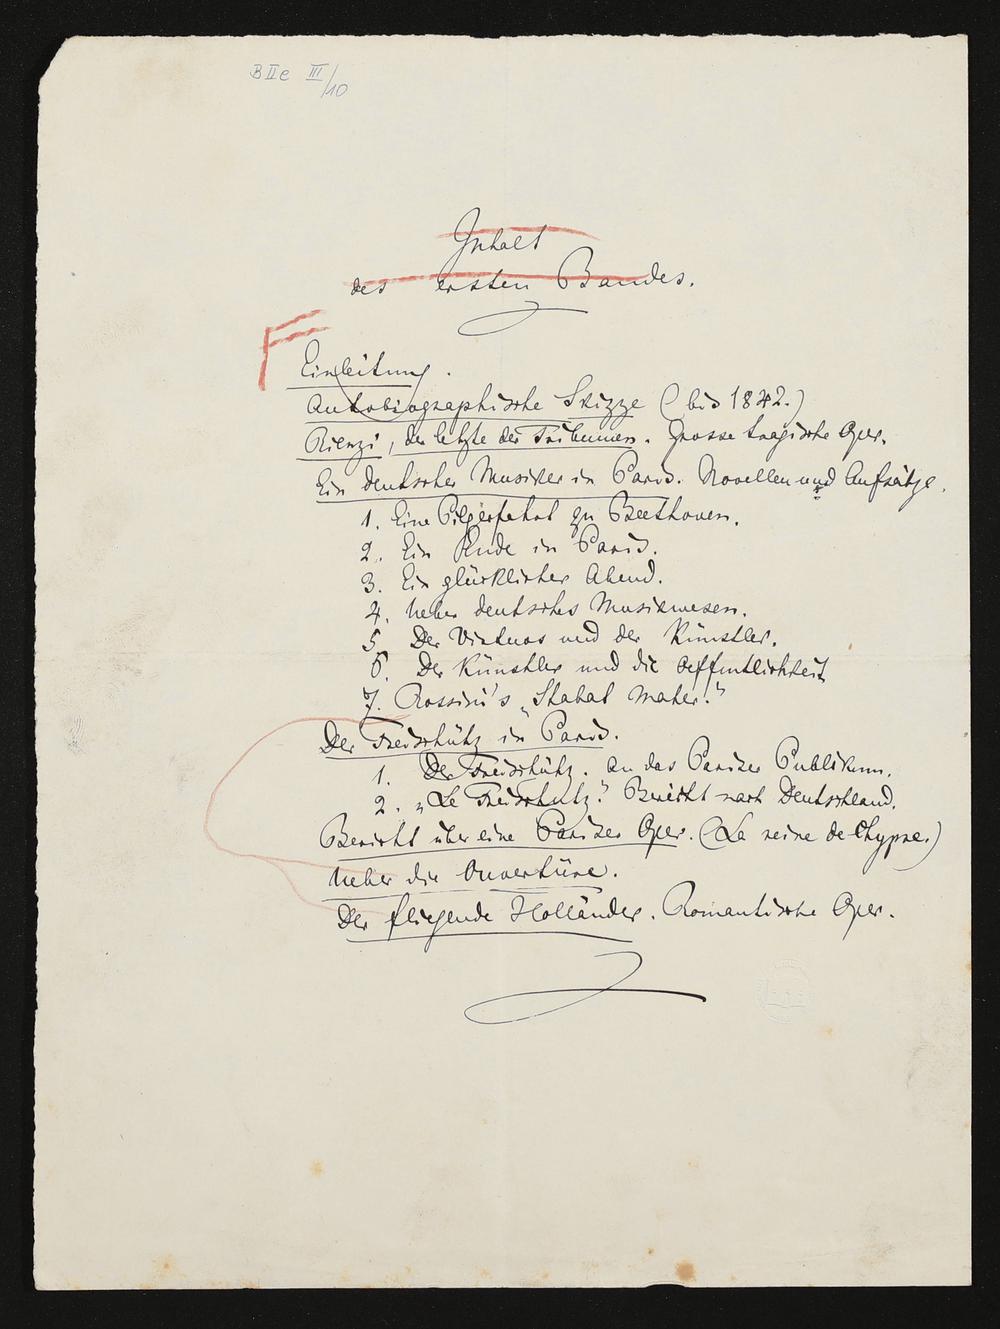 B II e III/10
Inhalt
des ersten Bandes.
Einleitung.
Autobiographische Skizze (bis 1842.)
Rienzi, der letzte der Tribunen. Grosse tragische Oper.
Ein deutscher Musiker in Paris. Novellen und Aufsätze.
1. Eine Pilgerfahrt zu Beethoven.
2. Ein Ende in Paris.
3. Ein glücklicher Abend.
4. Ueber deutsches Musikwesen.
5. Der Virtuos und der Künstler.
6. Der Künstler und die Oeffentlichkeit
7. Rossini's „Stabat mater."
Der Freischütz in Paris.
1. Der Freischütz. An das Pariser Publikum.
2. „Le Freischutz." Bericht nach Deutschland.
Bericht über eine Pariser Oper. (La reine de Chypre.)
Ueber die Ouvertüre.
Der fliegende Holländer. Romantische Oper.